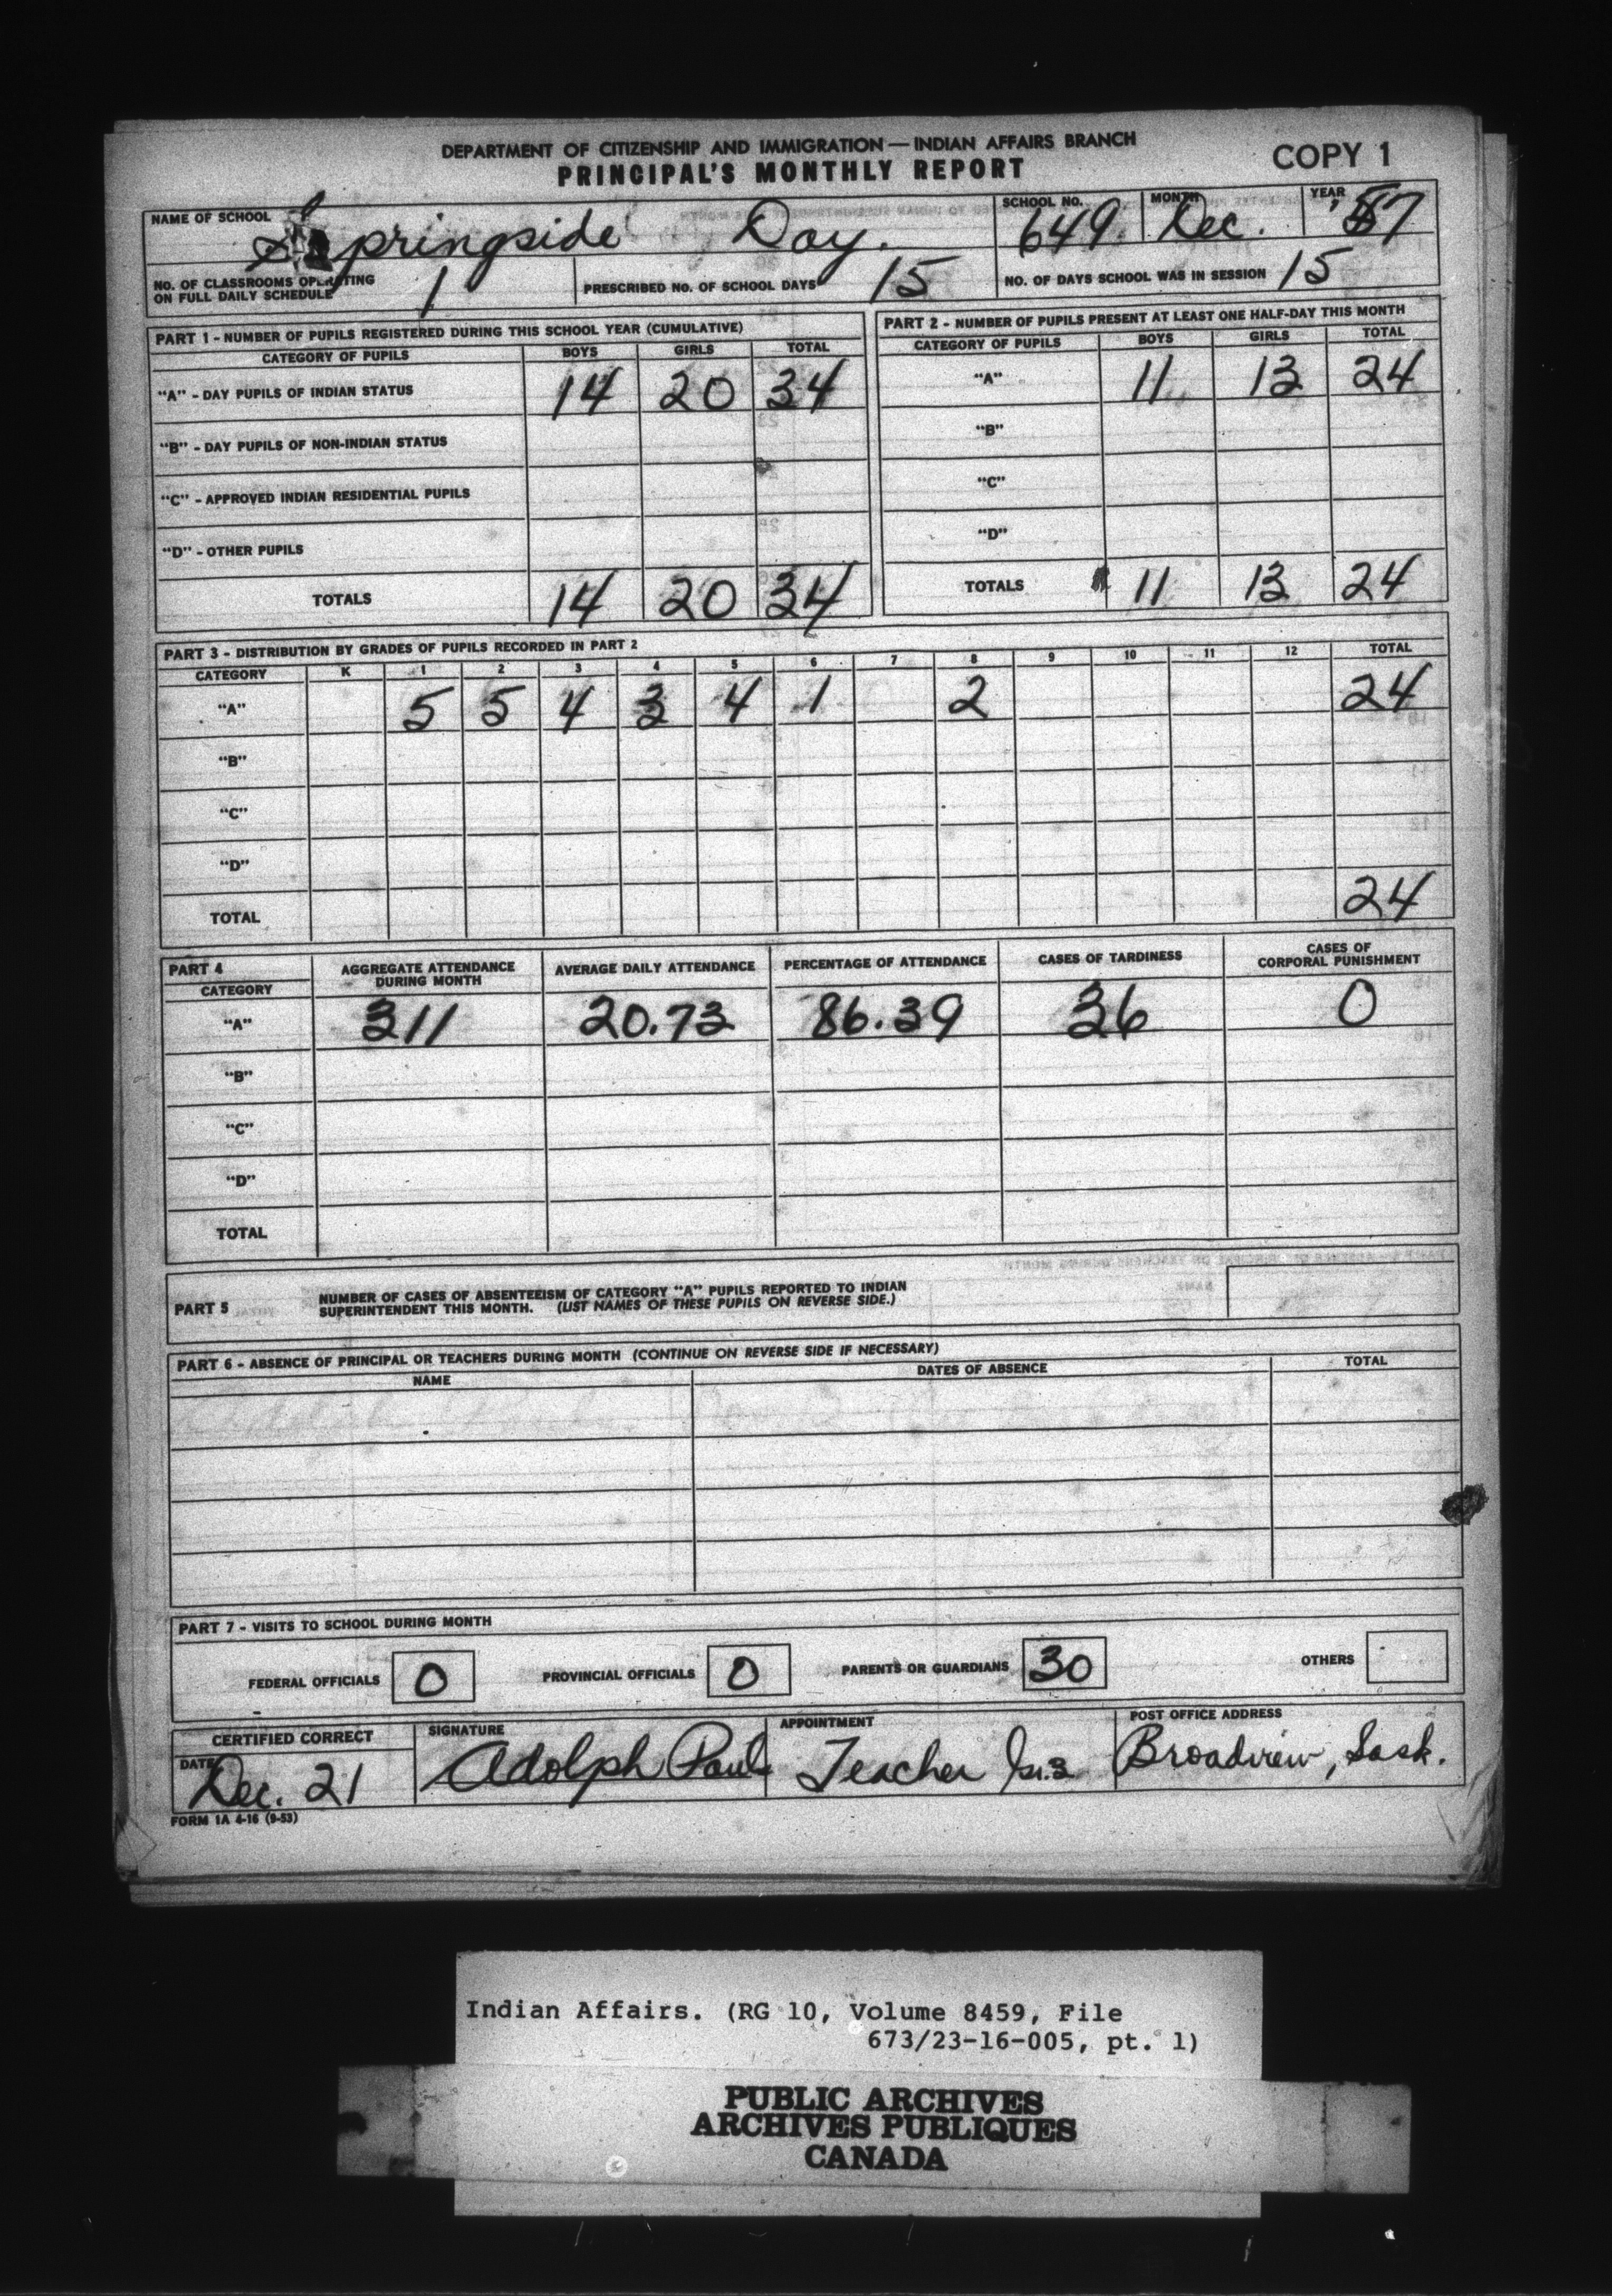 DEPARTMENT OF CITIZENSHIP AND IMMIGRATION — INDIAN AFFAIRS BRANCH
PRINCIPAL'S MONTHLY REPORT
COPY 1
NAME OF SCHOOL Springside Day.
SCHOOL NO. 649
MONTH Dec.
YEAR '57
NO. OF CLASSROOMS OPERATING
ON FULL DAILY SCHEDULE 1
PRESCRIBED NO. OF SCHOOL DAYS 15
NO. OF DAYS SCHOOL WAS IN SESSION 15
PART 1 - NUMBER OF PUPILS REGISTERED DURING THIS SCHOOL YEAR (CUMULATIVE)
CATEGORY OF PUPILS BOYS GIRLS TOTAL
"A" - DAY PUPILS OF INDIAN STATUS 14 20 34
"B" - DAY PUPILS OF NON-INDIAN STATUS
"C" - APPROVED INDIAN RESIDENTIAL PUPILS
"D" - OTHER PUPILS
TOTALS 14 20 34
PART 2 - NUMBER OF PUPILS PRESENT AT LEAST ONE HALF-DAY THIS MONTH
CATEGORY OF PUPILS BOYS GIRLS TOTAL
"A" 11 13 24
"B"
"C"
"D"
TOTALS 11 13 24
PART 3 - DISTRIBUTION BY GRADES OF PUPILS RECORDED IN PART 2
CATEGORY K 1 2 3 4 5 6 7 8 9 10 11 12 TOTAL
"A" 5 5 4 3 4 1 2 24
"B"
"C"
"D"
TOTAL 24
PART 4
CATEGORY
AGGREGATE ATTENDANCE
DURING MONTH
AVERAGE DAILY ATTENDANCE
PERCENTAGE OF ATTENDANCE
CASES OF TARDINESS
CASES OF
CORPORAL PUNISHMENT
"A" 311 20.73 86.39 36 0
"B"
"C"
"D"
TOTAL
PART 5
NUMBER OF CASES OF ABSENTEEISM OF CATEGORY "A" PUPILS REPORTED TO INDIAN
SUPERINTENDENT THIS MONTH. (LIST NAMES OF THESE PUPILS ON REVERSE SIDE.)
PART 6 - ABSENCE OF PRINCIPAL OR TEACHERS DURING MONTH (CONTINUE ON REVERSE SIDE IF NECESSARY)
NAME DATES OF ABSENCE TOTAL
PART 7 - VISITS TO SCHOOL DURING MONTH
FEDERAL OFFICIALS 0 PROVINCIAL OFFICIALS 0 PARENTS OR GUARDIANS 30 OTHERS
CERTIFIED CORRECT
DATE Dec. 21
SIGNATURE Adolph Pauls
APPOINTMENT Teacher
POST OFFICE ADDRESS Broadview, Sask.
FORM 1A 4-16 (9-53)
Indian Affairs. (RG 10, Volume 8459, File
673/23-16-005, pt. 1)
PUBLIC ARCHIVES
ARCHIVES PUBLIQUES
CANADA